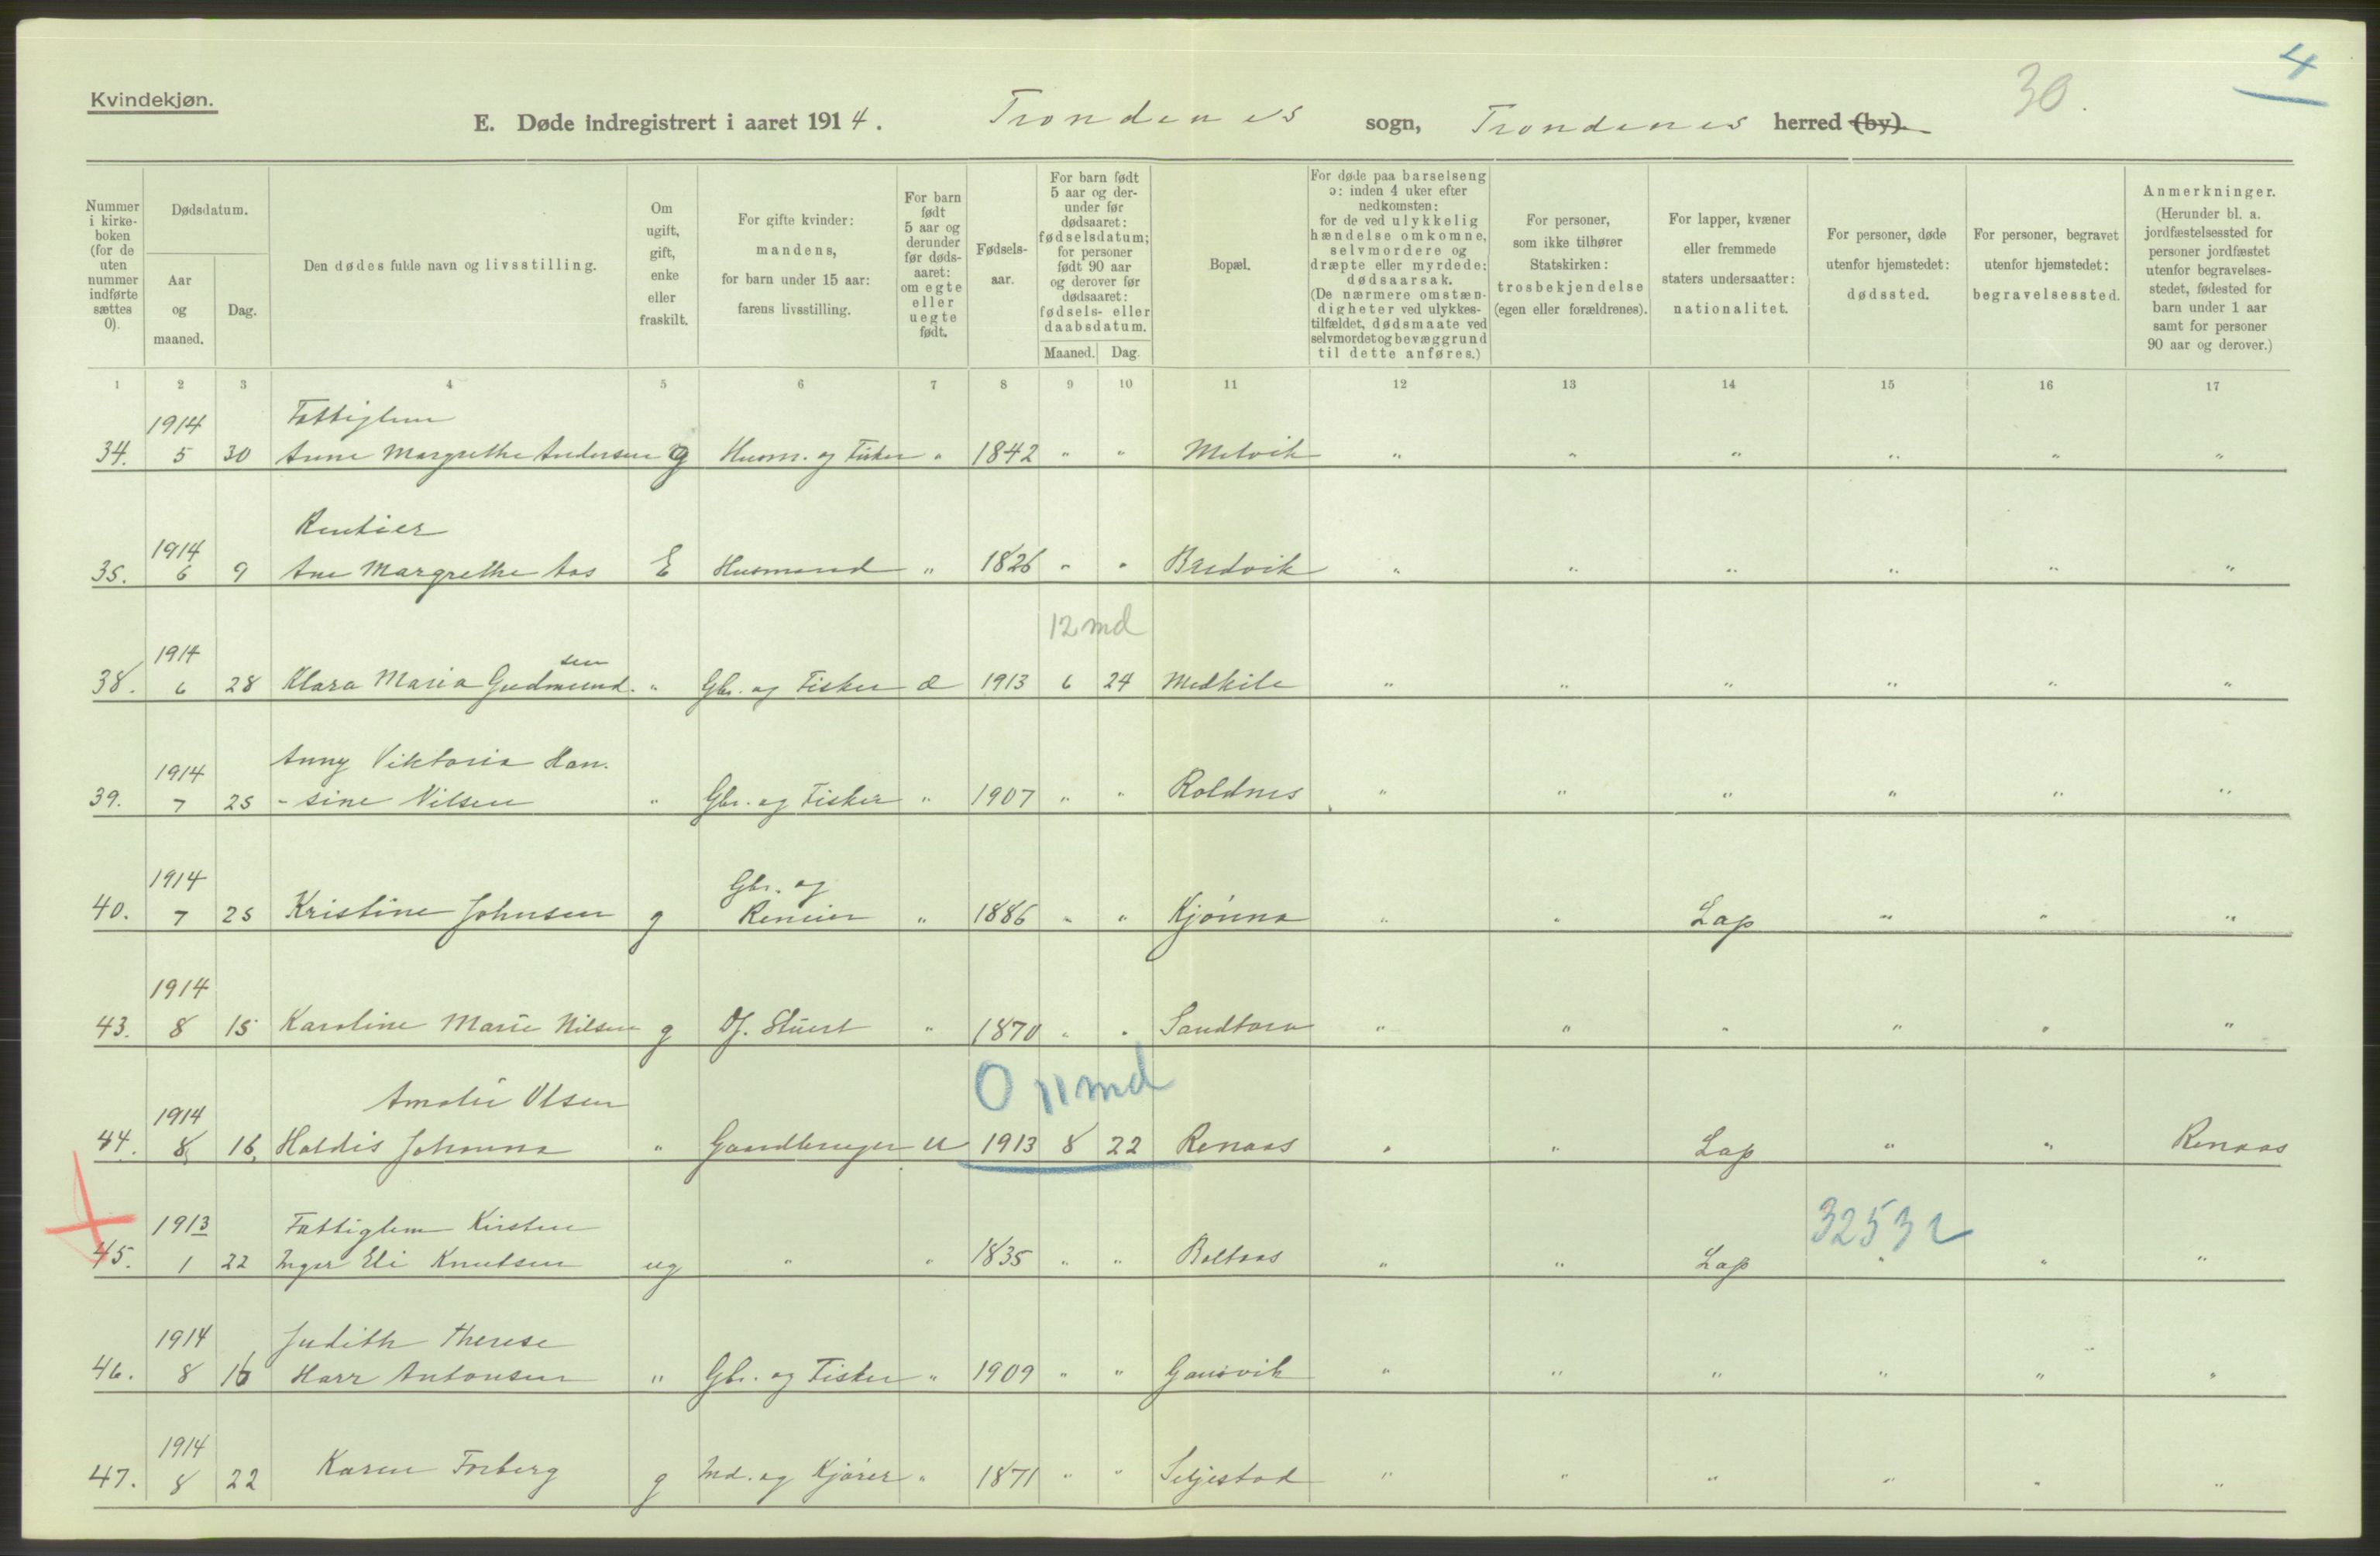 4
30.
Kvindekjøn.
E. Døde indregistrert i aaret 1914. Trondenes sogn, Trondenes herred (by).
Nummer i kirkeboken (for de uten nummer indførte sættes 0).
Dødsdatum.
Aar og maaned.
Dag.
Den dødes fulde navn og livsstilling.
Om ugift, gift, enke eller fraskilt.
For gifte kvinder: mandens, for barn under 15 aar: farens livsstilling.
For barn født 5 aar og derunder før dødsaaret: om egte eller uegte født.
Fødselsaar.
For barn født 5 aar og derunder før dødsaaret: fødselsdatum; for personer født 90 aar og derover før dødsaaret: fødsels- eller daabsdatum.
Maaned. Dag.
Bopæl.
For døde paa barselseng ɔ: inden 4 uker efter nedkomsten; for de ved ulykkelig hændelse omkomne, selvmordere og dræpte eller myrdede: dødsaarsak. (De nærmere omstændigheter ved ulykkestilfældet, dødsmaate ved selvmordet og bevæggrund til dette anføres.)
For personer, som ikke tilhører Statskirken: trosbekjendelse (egen eller forældrenes).
For lapper, kvæner eller fremmede staters undersaatter: nationalitet.
For personer, døde utenfor hjemstedet: dødssted.
For personer, begravet utenfor hjemstedet: begravelsessted.
Anmerkninger. (Herunder bl. a. jordfæstelsessted for personer jordfæstet utenfor begravelsesstedet, fødested for barn under 1 aar samt for personer 90 aar og derover.)
1 2 3 4 5 6 7 8 9 10 11 12 13 14 15 16 17
1914 Fattiglem
34. 5 30 Anne Margrethe Andersen g Husm. og Fisker " 1842 " " Melvik " " " " " "
1914 Rentier
35. 6 9 Ane Margrethe Aas E Husmand " 1826 " " Bredvik " " " " " "
12 md
1914 sen
38. 6 28 Klara Maria Gudmund. " Gbr. og Fisker æ 1913 6 24 Medkile " " " " " "
1914 Anny Viktoria Han.
39. 7 25 - sine Nilsen " Gbr. og Fisker " 1907 " " Roldnes " " " " " "
1914 Gbr. og
40. 7 25 Kristine Johnsen g Reneier " 1886 " " Kjønna " " Lap " " "
1914
43. 8 15 Karoline Marie Nilsen g " 1870 " " Sandtorv " " " " " "
0 11 md
1914 Amalie Olsen
44. 8 16 Haldis Johanna " Gaardbruger u 1913 8 22 Renaas " " Lap " " Renaas
1913 Fattiglem Kirsten 32532
45. 1 22 Inger Eli Knutsen ug " " 1835 " " Boltaas " " Lap " " "
1914 Judith Therese
46. 8 16 Harr Antonsen " Gbr. og Fisker " 1909 " " Gausvik " " " " " "
1914
47. 8 22 Karen Forberg g Ind. og Kjører " 1871 " " Seljestad " " " " " "